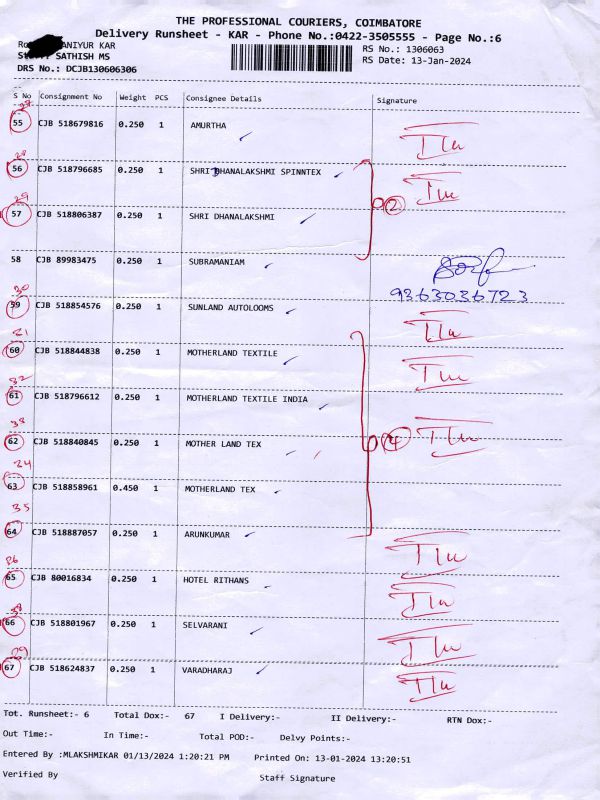 THE PROFESSIONAL COURIERS, COIMBATORE
Delivery Runsheet - KAR - Phone No.:0422-3505555 - Page No.:6
ANIYUR KAR
RS No.: 1306063
SATHISH MS
RS Date: 13-Jan-2024
DRS No.: DCJB130606306
S No Consignment No Weight PCS Consignee Details Signature
27
55 CJB 518679816 0.250 1 AMURTHA
28
56 CJB 518796685 0.250 1 SHRI DHANALAKSHMI SPINNTEX
2
29
57 CJB 518806387 0.250 1 SHRI DHANALAKSHMI
58 CJB 89983475 0.250 1 SUBRAMANIAM
9363036723
30
59 CJB 518854576 0.250 1 SUNLAND AUTOLOOMS
60 CJB 518844838 0.250 1 MOTHERLAND TEXTILE
61 CJB 518796612 0.250 1 MOTHERLAND TEXTILE INDIA
62 CJB 518840845 0.250 1 MOTHER LAND TEX
4
63 CJB 518858961 0.450 1 MOTHERLAND TEX
35
64 CJB 518887057 0.250 1 ARUNKUMAR
65 CJB 80016834 0.250 1 HOTEL RITHANS
66 CJB 518801967 0.250 1 SELVARANI
67 CJB 518624837 0.250 1 VARADHARAJ
Tot. Runsheet:- 6 Total Dox:- 67 I Delivery:- II Delivery:- RTN Dox:-
Out Time:- In Time:- Total POD:- Delvy Points:-
Entered By :MLAKSHMIKAR 01/13/2024 1:20:21 PM Printed On: 13-01-2024 13:20:51
Verified By Staff Signature